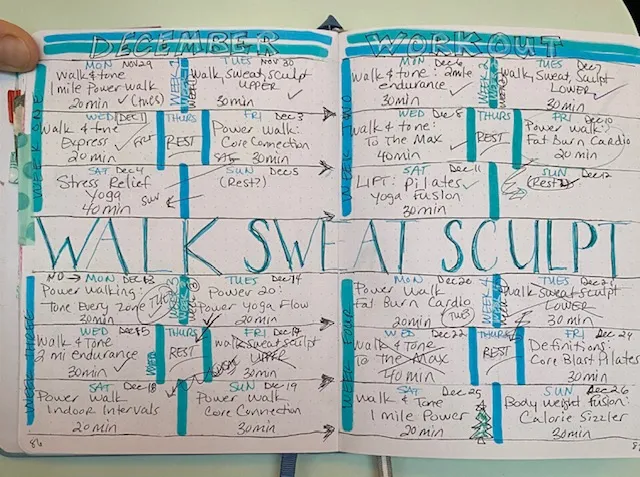 DECEMBER WORKOUT
WEEK ONE
MON NOV 29
Walk & tone
1 mile Power walk
20 min ✓ (TUES)
WEEK 1
TUES NOV 30
Walk, Sweat, Sculpt
UPPER
30 min ✓
WED DEC 1
Walk & tone
Express ✓ FRI
20 min
THURS
REST
FRI Dec 3
Power Walk:
Core Connection
30 min
SAT Dec 4
Stress Relief
Yoga
40 min SUN
SUN Dec 5
(Rest?)
WEEK TWO
MON Dec 6
Walk & tone: 2 mile
endurance
30 min ✓
TUES Dec 7
Walk, Sweat, Sculpt
LOWER ✓
30 min
WED Dec 8
Walk & tone:
To The Max
40 min ✓
THURS
REST
FRI Dec 10
Power walk:
Fat Burn Cardio
20 min
SAT Dec 11
LIFT: Pilates ✓
Yoga Fusion
30 min
SUN Dec 12
(Rest)
WALK SWEAT SCULPT
WEEK THREE
NO → MON Dec 13
Power Walking:
Tone Every Zone THUR
30 min
TUES Dec 14
Power 20:
Power Yoga Flow
20 min
WED Dec 15
Walk & Tone
2 mi endurance
30 min ✓
THURS
REST
FRI Dec 17
Walk Sweat Sculpt
UPPER
30 min
SAT Dec 18
Power Walk
Indoor Intervals
20 min
SUN Dec 19
Power Walk
Core Connection
30 min
WEEK FOUR
MON Dec 20
Power Walk
Fat Burn Cardio
20 min (TUES)
WEEK 4
TUES Dec 21
Walk Sweat Sculpt
LOWER
30 min
WED Dec 22
Walk & Tone
To The Max
40 min
THURS
REST
FRI Dec 24
Definitions:
Core Blast Pilates
30 min
SAT Dec 25
Walk & Tone
1 mile Power
20 min
SUN Dec 26
Body Weight Fusion:
Calorie Sizzler
30 min
86